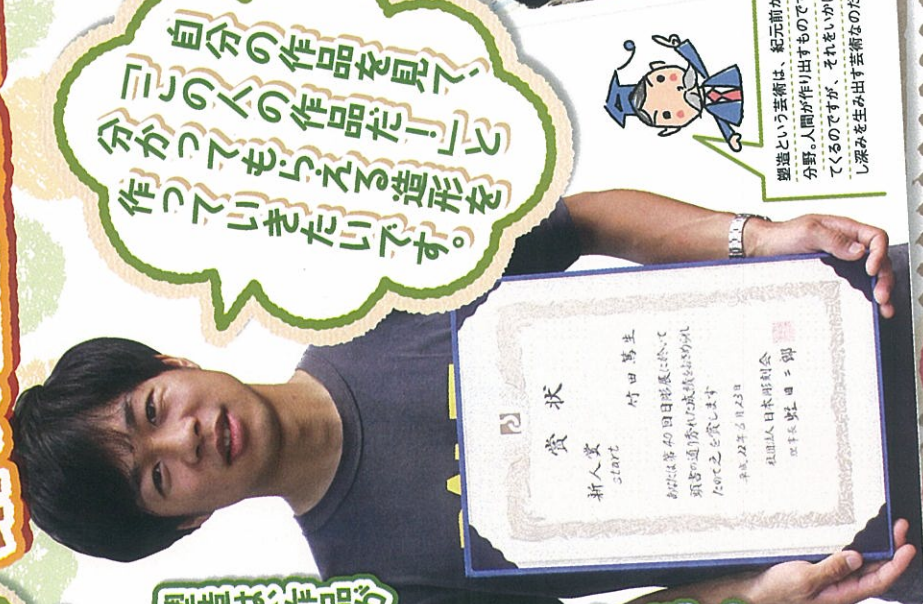 自分の作品を見て、
「この人の作品だ!」と
分かってもらえる造形を
作っていきたいです。
塑造という芸術は、紀元前か
分野。人間が作り出すもので
てくるのですが、それをいか
し深みを生み出す芸術なのだ
賞状
新人賞
start
竹田萬生
あなたは第40回日彫展に於いて
頭書の通り秀れた成績をおさめられ
たので之を賞します
平成22年6月23日
社団法人日本彫刻会
理事長 蛭田二郎